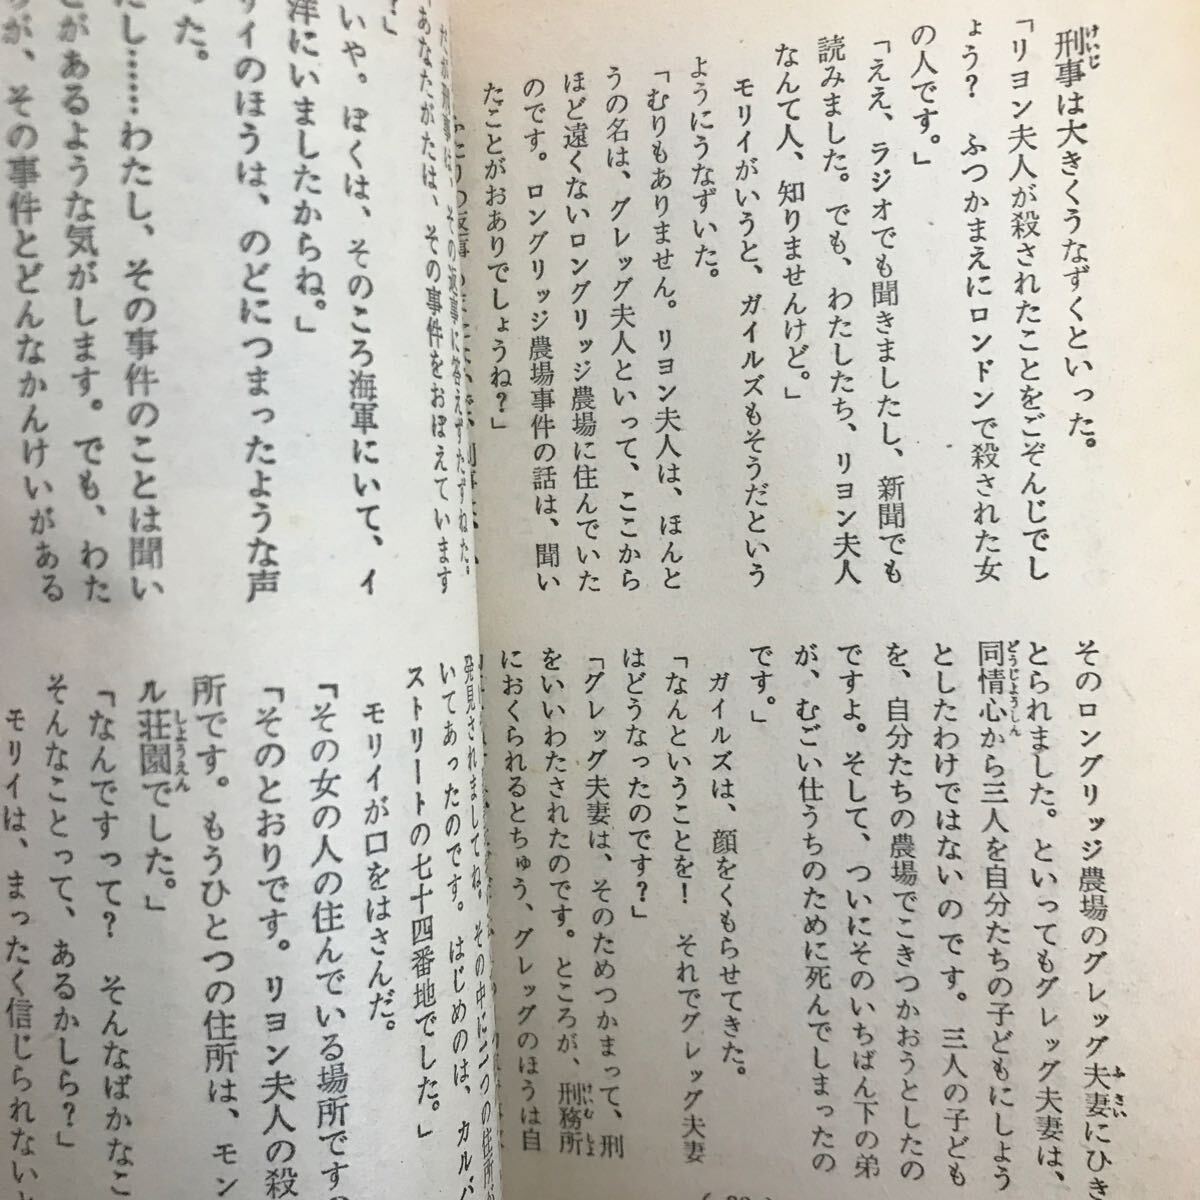 刑事は大きくうなずくといった。
「リヨン夫人が殺されたことをごぞんじでし
ょう? ふつかまえにロンドンで殺された女
の人です。」
「ええ、ラジオでも聞きましたし、新聞でも
読みました。でも、わたしたち、リヨン夫人
なんて人、知りませんけど。」
モリイがいうと、ガイルズもそうだという
ようにうなずいた。
「むりもありません。リヨン夫人は、ほんと
うの名は、グレッグ夫人といって、ここから
ほど遠くないロングリッジ農場に住んでいた
のです。ロングリッジ農場事件の話は、聞い
たことがおありでしょうね?」
そのロングリッジ農場のグレッグ夫妻にひき
とられました。といってもグレッグ夫妻は、
同情心から三人を自分たちの子どもにしよう
としたわけではないのです。三人の子ども
を、自分たちの農場でこきつかおうとしたの
ですよ。そして、ついにそのいちばん下の弟
が、むごい仕うちのために死んでしまったの
です。」
ガイルズは、顔をくもらせてきた。
「なんということを! それでグレッグ夫妻
はどうなったのです?」
「グレッグ夫妻は、そのためつかまって、刑
をいいわたされたのです。ところが、刑務所
におくられるとちゅう、グレッグのほうは自
だが刑事は、その返事に答えずたずねた。
「あなたがたは、その事件をおぼえています
?」
いや。ぼくは、そのころ海軍にいて、イ
洋にいましたからね。」
リイのほうは、のどにつまったような声
た。
たし……わたし、その事件のことは聞い
とがあるような気がします。でも、わた
が、その事件とどんなかんけいがある
発見されましてね。その中に二つの住所が
いてあったのです。はじめのは、カルバ
ストリートの七十四番地でした。」
モリイが口をはさんだ。
「その女の人の住んでいる場所ですの
「そのとおりです。リヨン夫人の殺
所です。もうひとつの住所は、モン
ル荘園でした。」
「なんですって? そんなばかなこ
そんなことって、あるかしら?」
モリイは、まったく信じられないと